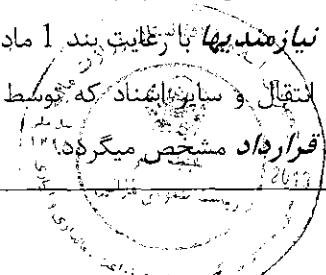 نیازمندیها با رعایت بند 1 ماد
انتقال و سایر اسناد که توسط
قرارداد مشخص میگردد.